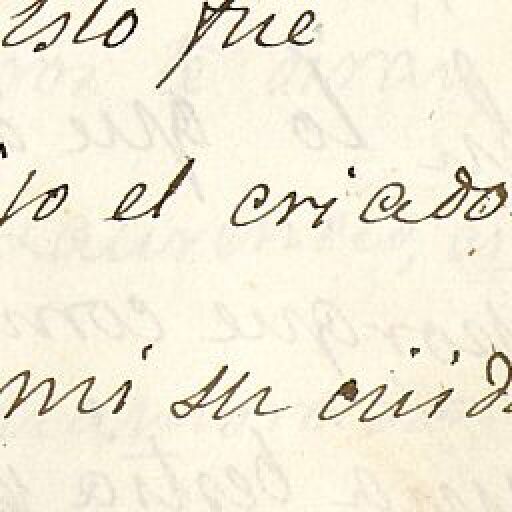 esto fue
jo el criado
mi su cuida